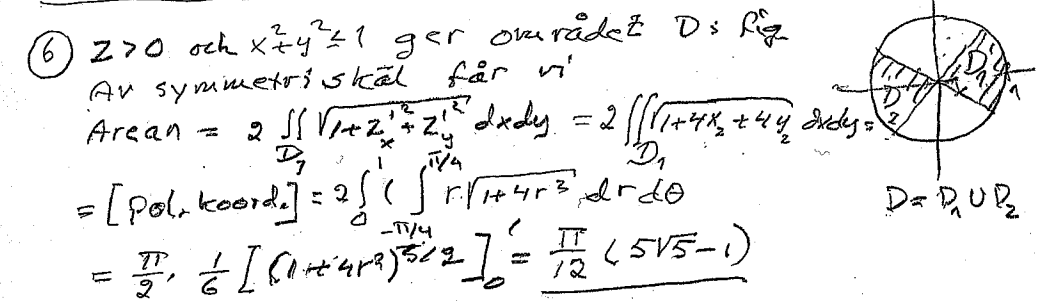 ⑥ z>0 och x²+y²≤1 ger området D i fig
Av symmetriskäl får vi
Arean = 2 ∬_{D₁} √(1+z'ₓ²+z'ᵧ²) dxdy = 2 ∬_{D₁} √(1+4x²+4y²) dxdy =
= [pol. koord.] = 2 ∫₀¹ ( ∫_{-π/4}^{π/4} r√(1+4r²) dr dθ
= π/2 · 1/6 [ (1+4r²)^{3/2} ]₀¹ = π/12 (5√5-1)
D₁
D₂
1
D = D₁ ∪ D₂